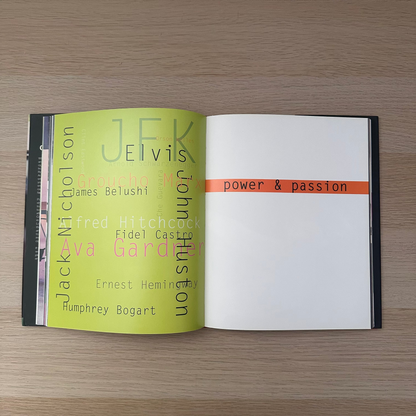 JFK
Elvis
Groucho Marx
James Belushi
Jack Nicholson
John Huston
Alfred Hitchcock
Fidel Castro
Ava Gardner
Ernest Hemingway
Humphrey Bogart
power & passion